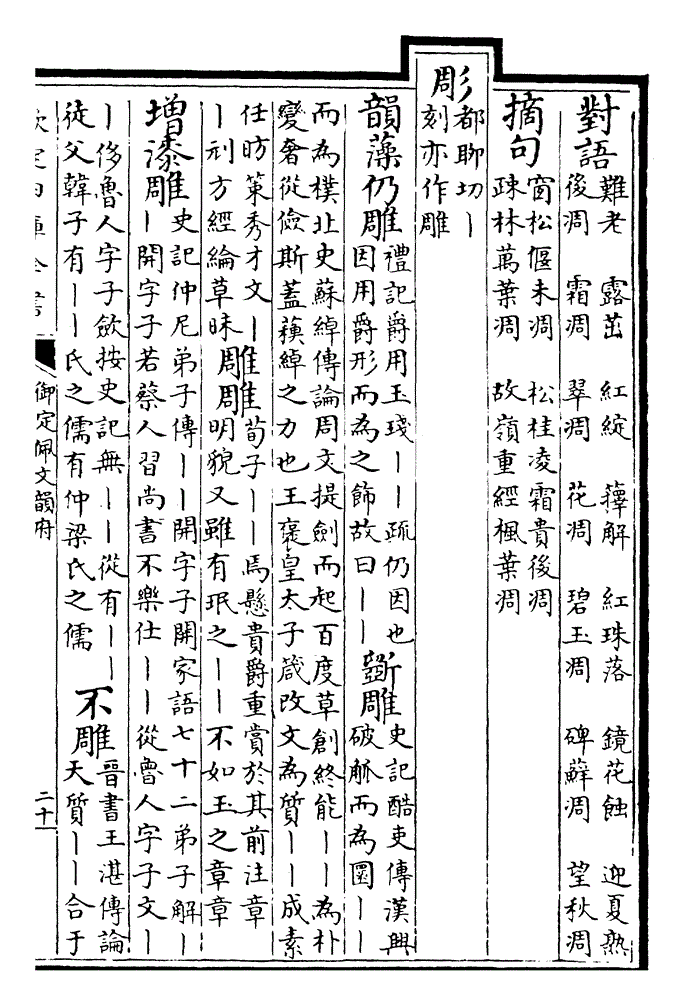 對語難老　露茁　紅綻　蘀解　紅珠落　鏡花蝕　迎夏熟
後凋　霜凋　翠凋　花凋　碧玉凋　碑蘚凋　望秋凋
摘句窗松偃未凋　松桂凌霜貴後凋
疎林萬葉凋　故嶺重經楓葉凋
彫都聊切｜
刻亦作雕
韻藻仍雕禮記爵用玉琖｜｜疏仍因也
因用爵形而為之飾故曰｜｜
斵雕史記酷吏傳漢興
破觚而為圜｜｜
而為樸北史蘇綽傳論周文提劍而起百度草創終能｜｜為朴
變奢從儉斯蓋蘇綽之力也王褒皇太子箴改文為質｜｜成素
任昉策秀才文｜
｜刓方經綸草昧
雕雕荀子｜｜焉懸貴爵重賞於其前注章
明貌又雖有珉之｜｜不如玉之章章
增漆雕史記仲尼弟子傳｜｜開字子開家語七十二弟子解｜
｜開字子若蔡人習尚書不樂仕｜｜從魯人字子文｜
｜侈魯人字子歛按史記無｜｜從有｜｜
徒父韓子有｜｜氏之儒有仲梁氏之儒
不雕晉書王湛傳論
天質｜｜合于
欽定四庫全書
御定佩文韻府
二十